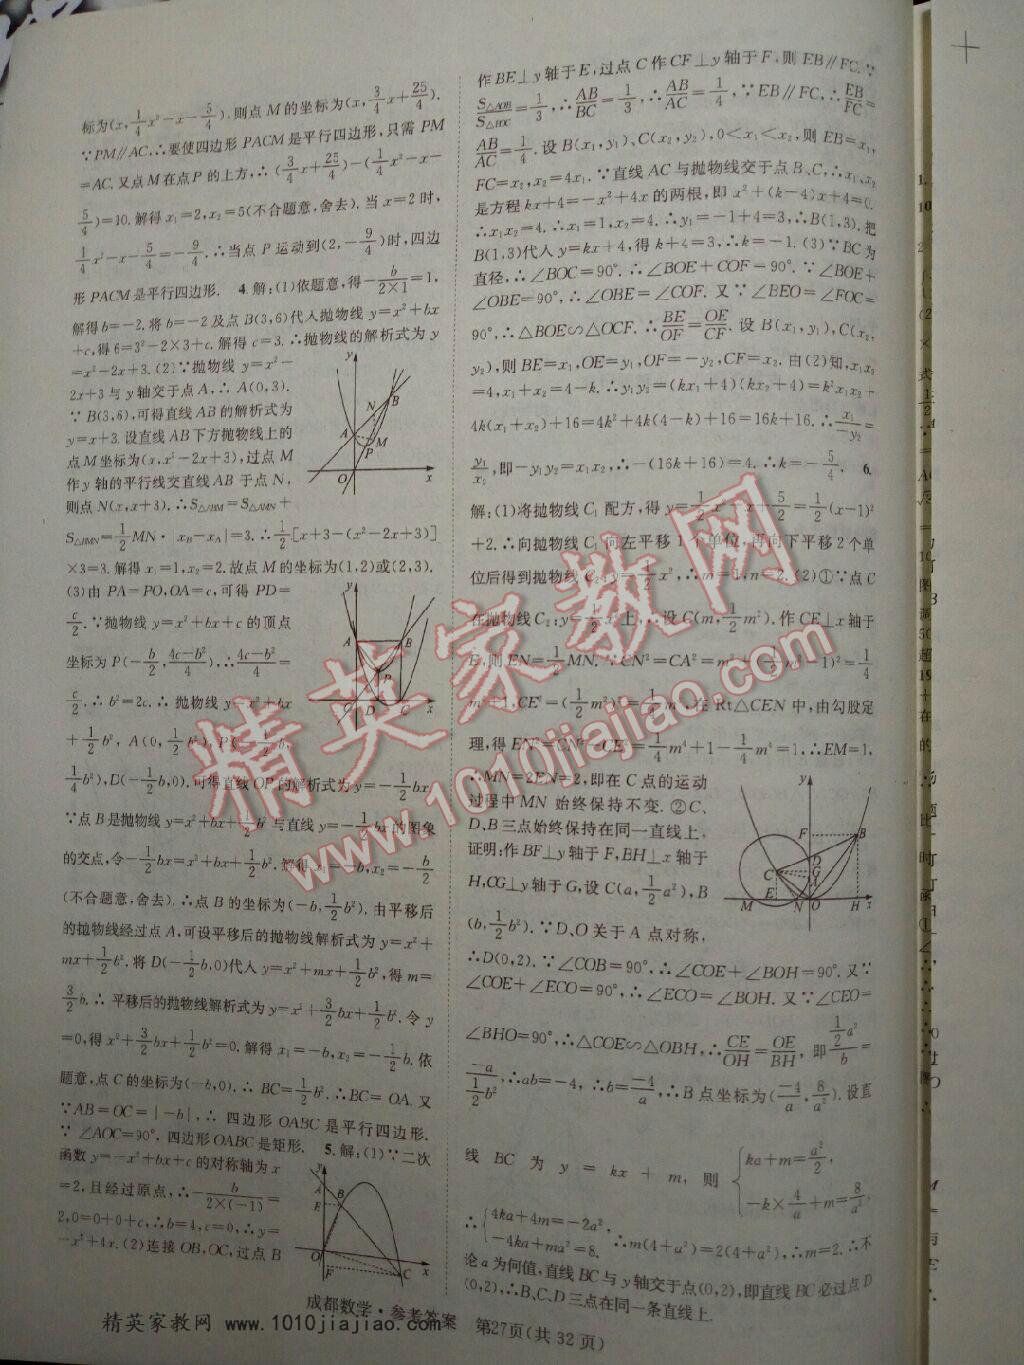 标为(x,1/4x²-x-5/4).则点M的坐标为(x,3/4x+25/4).
∵PM∥AC,∴要使四边形PACM是平行四边形,只需PM
=AC.又点M在点P的上方,∴(3/4x+25/4)-(1/4x²-x-
5/4)=10.解得x₁=2,x₂=5(不合题意,舍去).当x=2时,
1/4x²-x-5/4=-9/4.∴当点P运动到(2,-9/4)时,四边
形PACM是平行四边形. 4.解:(1)依题意,得-b/(2×1)=1,
解得b=-2.将b=-2及点B(3,6)代入抛物线y=x²+bx
+c,得6=3²-2×3+c.解得c=3.∴抛物线的解析式为y
=x²-2x+3.(2)∵抛物线y=x²-
2x+3与y轴交于点A,∴A(0,3).
∵B(3,6),可得直线AB的解析式为
y=x+3.设直线AB下方抛物线上的
点M坐标为(x,x²-2x+3),过点M
作y轴的平行线交直线AB于点N,
则点N(x,x+3).∴S△ABM=S△AMN+
S△BMN=1/2MN·|xB-xA|=3.∴1/2[x+3-(x²-2x+3)]
×3=3.解得x₁=1,x₂=2.故点M的坐标为(1,2)或(2,3).
(3)由PA=PO,OA=c,可得PD=
c/2.∵抛物线y=x²+bx+c的顶点
坐标为P(-b/2,(4c-b²)/4),∴(4c-b²)/4=
c/2.∴b²=2c.∴抛物线y=x²+bx
+1/2b²,A(0,1/2b²),P(-1/2b,
1/4b²),D(-1/2b,0).可得直线OP的解析式为y=-1/2bx.
∵点B是抛物线y=x²+bx+1/2b²与直线y=-1/2bx的图象
的交点,令-1/2bx=x²+bx+1/2b².解得x₁=-b,x₂=-b/2
(不合题意,舍去).∴点B的坐标为(-b,1/2b²).由平移后
的抛物线经过点A,可设平移后的抛物线解析式为y=x²+
mx+1/2b².将D(-1/2b,0)代入y=x²+mx+1/2b²,得m=
3/2b.∴平移后的抛物线解析式为y=x²+3/2bx+1/2b².令y
=0,得x²+3/2bx+1/2b²=0.解得x₁=-b,x₂=-1/2b.依
题意,点C的坐标为(-b,0).∴BC=1/2b².∴BC=OA.又
∵AB=OC=|-b|,∴四边形OABC是平行四边形.
∵∠AOC=90°,四边形OABC是矩形. 5.解:(1)∵二次
函数y=-x²+bx+c的对称轴为x
=2,且经过原点,∴-b/(2×(-1))=
2,0=0+0+c,∴b=4,c=0,∴y=
-x²+4x.(2)连接OB,OC,过点B
作BE⊥y轴于E,过点C作CF⊥y轴于F,则EB∥FC.∵
S△AOB/S△BOC=1/3,∴AB/BC=1/3,∴AB/AC=1/4,∵EB∥FC,∴EB/FC=
AB/AC=1/4.设B(x₁,y₁)、C(x₂,y₂),0<x₁<x₂,则EB=x₁,
FC=x₂,x₂=4x₁.∵直线AC与抛物线交于点B、C,∴x₁、x₂
是方程kx+4=-x²+4x的两根,即x²+(k-4)x+4=0.
∴x₁x₂=4.∴x₁=1,x₂=4.∴y₁=-1+4=3,∴B(1,3).把
B(1,3)代入y=kx+4,得k+4=3,∴k=-1.(3)∵BC为
直径,∴∠BOC=90°.∴∠BOE+COF=90°.∵∠BOE+
∠OBE=90°,∴∠OBE=∠COF.又∵∠BEO=∠FOC=
90°.∴△BOE∽△OCF.∴BE/OF=OE/CF.设B(x₁,y₁),C(x₂,
y₂),则BE=x₁,OE=y₁,OF=-y₂,CF=x₂.由(2)知,x₁x₂
=4,x₁+x₂=4-k.∴y₁y₂=(kx₁+4)(kx₂+4)=k²x₁x₂+
4k(x₁+x₂)+16=4k²+4k(4-k)+16=16k+16.∴x₁/-y₂=
y₁/x₂,即-y₁y₂=x₁x₂,∴-(16k+16)=4.∴k=-5/4. 6.
解:(1)将抛物线C₁配方,得y=1/2x²-x+5/2=1/2(x-1)²
+2.∴向抛物线C₁向左平移1个单位,再向下平移2个单
位后得到抛物线C₂:y=1/2x²,∴m=1,n=2.(2)①∵点C
在抛物线C₂:y=1/2x²上,∴设C(m,1/2m²).作CE⊥x轴于
E,则EN=1/2MN.∵CN²=CA²=m²+(1/2m²-1)²=1/4
m⁴+1,CE²=(1/2m²)²=1/4m⁴,在Rt△CEN中,由勾股定
理,得EN²=CN²-CE²=1/4m⁴+1-1/4m⁴=1.∴EM=1,
∴MN=2EN=2,即在C点的运动
过程中MN始终保持不变.②C、
D、B三点始终保持在同一直线上,
证明:作BF⊥y轴于F,BH⊥x轴于
H,CG⊥y轴于G,设C(a,1/2a²),B
(b,1/2b²).∵D、O关于A点对称,
∴D(0,2).∵∠COB=90°,∴∠COE+∠BOH=90°.又∵
∠COE+∠ECO=90°,∴∠ECO=∠BOH.又∵∠CEO=
∠BHO=90°,∴△COE∽△OBH,∴CE/OH=OE/BH,即(1/2a²)/b=
-a/(1/2b²),∴ab=-4,∴b=-4/a,∴B点坐标为(-4/a,8/a²).设直
线BC为y=kx+m,则{ka+m=a²/2, -k×4/a+m=8/a²,
∴{4ka+4m=-2a², -4ka+ma²=8. ∴m(4+a²)=2(4+a²),∴m=2.∴不
论a为何值,直线BC与y轴交于点(0,2),即直线BC必过点D
(0,2),∴B、C、D三点在同一条直线上.
成都数学·参考答案 第27页(共32页)
精英家教网 www.1010jiajiao.com
精英家教网
www.1010jiajiao.com